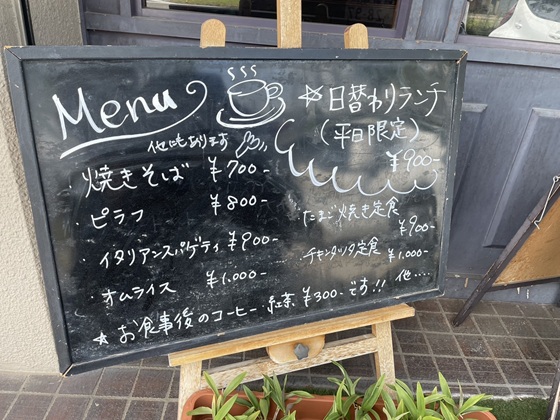 Menu
他にもあります
・焼きそば ¥700-
・ピラフ ¥800-
・イタリアンスパゲティ ¥900-
・オムライス ¥1.000-
☆日替わりランチ
(平日限定)
¥900-
・たまご焼き定食
¥900-
・チキンカツ定食 ¥1.000-
他....
☆お食事後のコーヒー・紅茶 ¥300-です!!